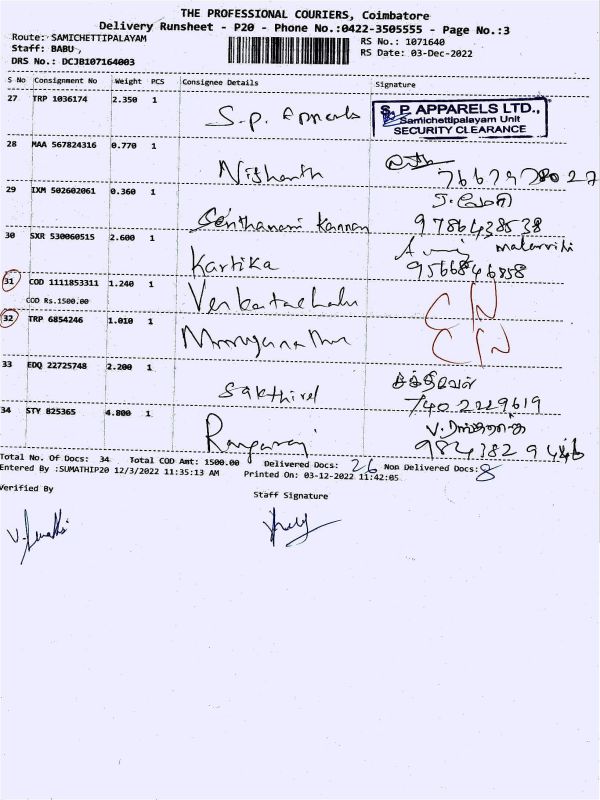 THE PROFESSIONAL COURIERS, Coimbatore
Delivery Runsheet - P20 - Phone No.:0422-3505555 - Page No.:3
Route: SAMICHETTIPALAYAM
RS No.: 1071640
Staff: BABU,
RS Date: 03-Dec-2022
DRS No.: DCJB107164003
S No Consignment No Weight PCS Consignee Details Signature
27 TRP 1036174 2.350 1 S.P. Apparels
S. P. APPARELS LTD.,
Samichettipalayam Unit
SECURITY CLEARANCE
28 MAA 567824316 0.770 1 Nishanth
29 IXM 502602061 0.360 1 Senthamari Kannan
9786438538
30 SXR 530060515 2.600 1 Kartika
malarvili
9566846858
31 COD 1111853311 1.240 1 Venkatachalu CN
COD Rs.1500.00
32 TRP 6854246 1.010 1 CN
33 EDQ 22725748 2.200 1 Sakthivel
சக்திவேல்
7402229619
34 STY 825365 4.800 1 Rangaraj
V. ரங்கராஜ்
Total No. Of Docs: 34 Total COD Amt: 1500.00 Delivered Docs: 26 Non Delivered Docs: 8
Entered By :SUMATHIP20 12/3/2022 11:35:13 AM Printed On: 03-12-2022 11:42:05
Verified By
Staff Signature